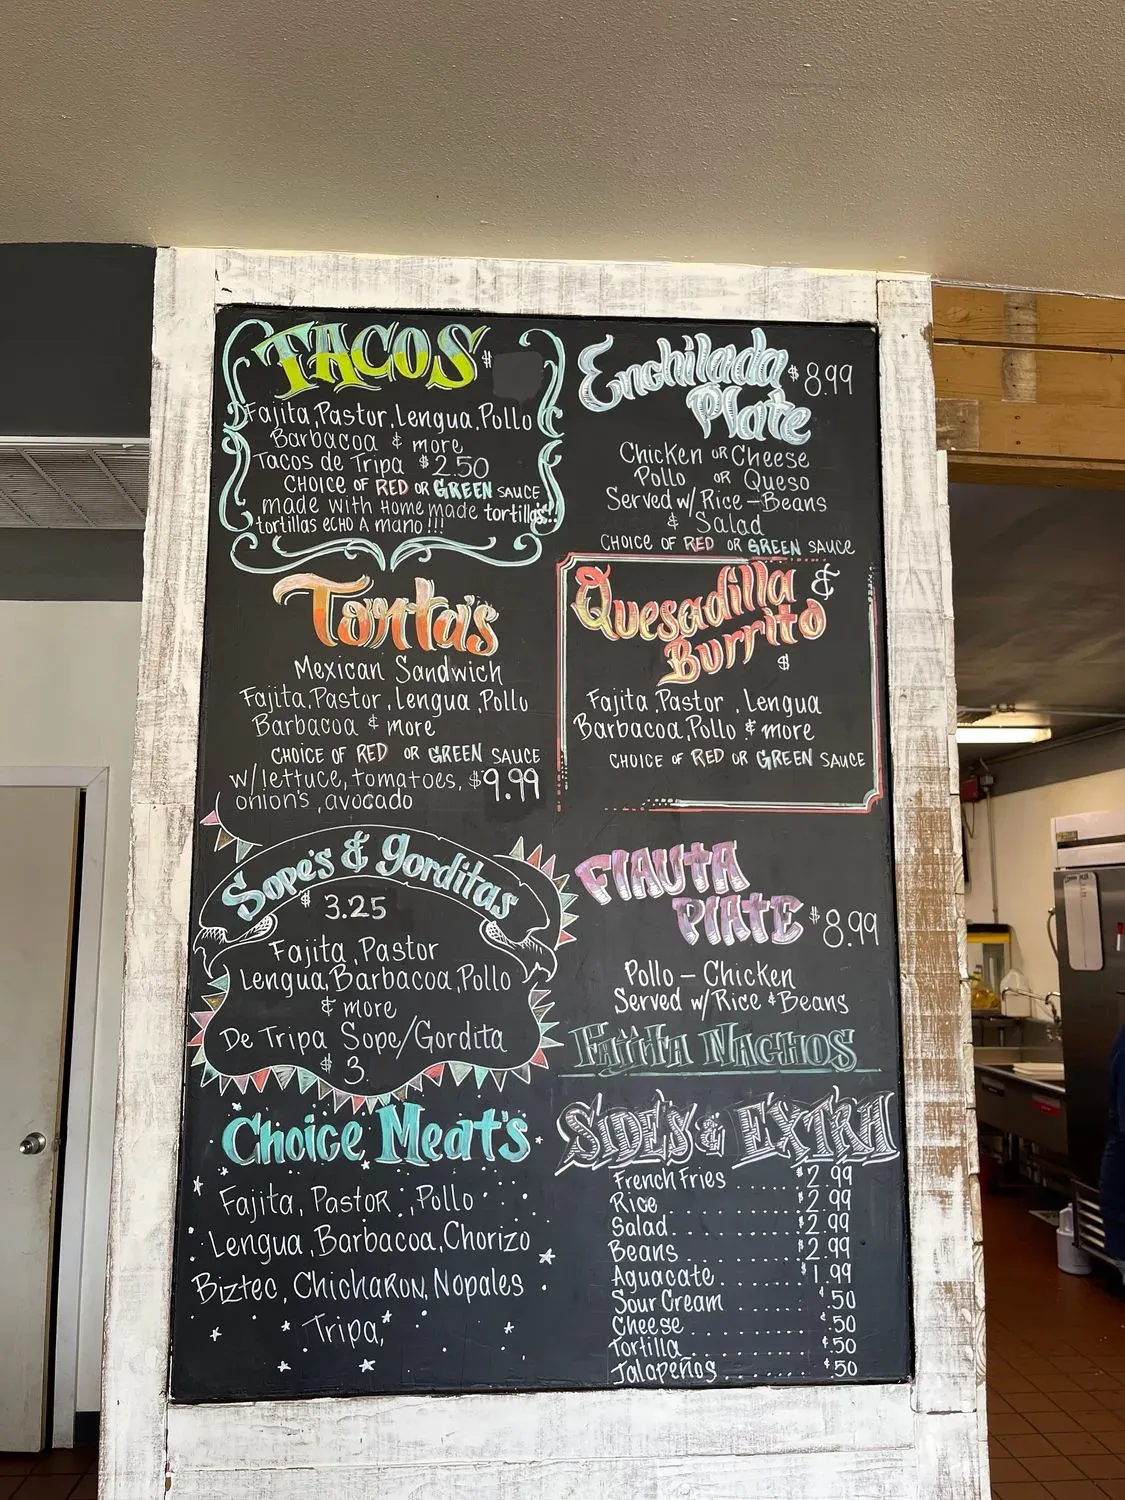 TACOS $
Fajita, Pastor, Lengua, Pollo
Barbacoa & more
Tacos de Tripa $2.50
CHOICE OF RED OR GREEN SAUCE
made with Home made tortillas!!
tortillas ECHO A mano!!!
Torta's
Mexican Sandwich
Fajita, Pastor, Lengua, Pollo
Barbacoa & more
CHOICE OF RED OR GREEN SAUCE
w/lettuce, tomatoes, $9.99
onion's, avocado
Sope's & Gorditas
$ 3.25
Fajita, Pastor
Lengua, Barbacoa, Pollo
& more
De Tripa Sope/Gordita
$ 3.
Choice Meat's
Fajita, Pastor, Pollo
Lengua, Barbacoa, Chorizo
Biztec, Chicharon, Nopales
Tripa,
Enchilada $8.99
Plate
Chicken OR Cheese
Pollo OR Queso
Served w/Rice-Beans
& Salad
CHOICE OF RED OR GREEN SAUCE
Quesadilla &
Burrito
$
Fajita, Pastor, Lengua
Barbacoa, Pollo & more
CHOICE OF RED OR GREEN SAUCE
FlAutA
PlAtE $8.99
Pollo - Chicken
Served w/Rice & Beans
Fajita Nachos
SIDE'S & EXTRA
French Fries ...... $2.99
Rice ............ $2.99
Salad .......... $2.99
Beans .......... $2.99
Aguacate ....... $1.99
Sour Cream ...... ¢.50
Cheese .......... ¢.50
Tortilla .......... ¢.50
Jalapeños ........ ¢.50